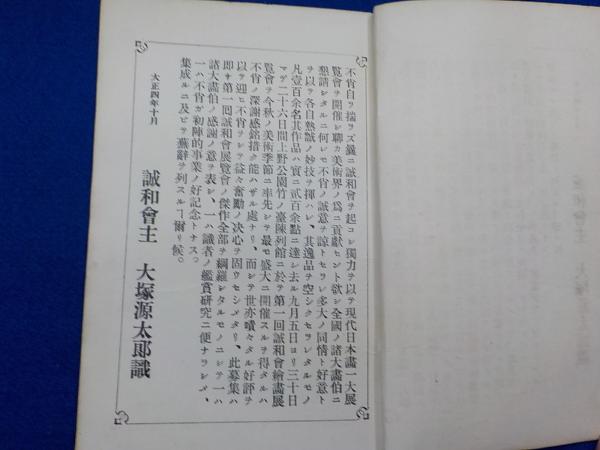 不肖自ラ揣ラズ曩ニ誠和會ヲ起コシ獨力ヲ以テ現代日本畫一大展
覧會ヲ開催シ聊カ美術界ノ爲ニ貢獻セント欲シ全國ノ諸大畫伯ニ
懇請シタルニ何レモ不肖ノ誠意ヲ諒トセラレ多大ノ同情ト好意ト
ヲ以テ各自熱誠ノ妙技ヲ揮ハレ、其逸品ヲ空シクセラレタルモノ
凡壹百余名其作品ハ實ニ貳百余點ニ達シ去ル九月五日ヨリ三十日
マデ二十六日間上野公園竹ノ臺陳列館ニ於テ第一回誠和會繪畫展
覧會ヲ今秋ノ美術季節ニ率先シテ最モ盛大ニ開催スルヲ得タルハ
不肖ノ深謝感銘措ク能ハザル處ナリ、而シテ世亦嘖々タル好評ヲ
以テ迎ヒ不肖ヲシテ益々奮勵ノ决心ヲ固ウセシメタリ、此募集ハ
即チ第一回誠和會展覧會ノ傑作全部ヲ網羅シタルモノニシテ一ハ
諸大畫伯ノ感謝ノ意ヲ表シ、一ハ識者ノ鑑賞研究ニ便ナラシメ、
一ハ不肖ガ初陣的事業ノ好記念トナス。
集成ルニ及ビテ蕪辭ヲ列スルヿ爾リ候。
大正四年十月
誠和會主 大塚源太郎識